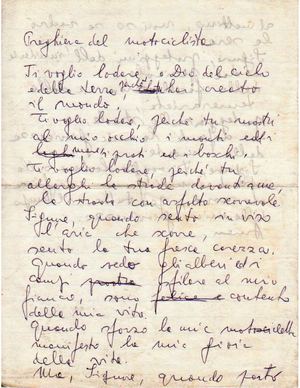 Preghiera del motociclista
Ti voglio lodare, o Dio del cielo
e della terra perché hai creato
il mondo,
Ti voglio lodare, perché tu mostri
al mio occhio i monti ed i
prati ed i boschi.
Ti voglio lodare, perché tu
allarghi la strada davanti a me,
la strada con asfalto scorrevole
Signore, quando sento in viso
l'aria che scorre,
sento la tua fresca carezza.
Quando vedo gli alberi ed i
campi sfilare al mio
fianco, sono contento
della mia vita.
Quando sforzo la mia motocicletta
manifesto la mia gioia
della vita.
Ma, Signore, quando parto